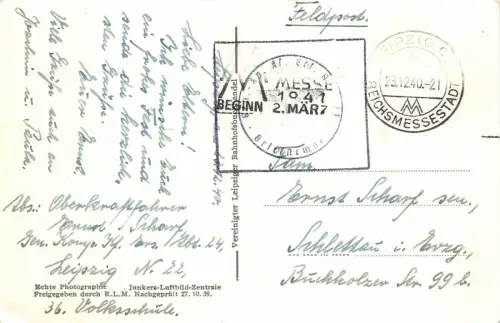 Feldpost.
LEIPZIG C
23.12.40.-21
REICHSMESSESTADT
MESSE
BEGINN
1941
2. MÄRZ
Liebe Eltern!
Ich wünsche Euch
ein frohes Fest und
sende die herzlich-
sten Grüße.
Euer Ernst.
Viele Grüße auch an
Joachim u. Paula.
Vereinigter Leipziger Bahnhofsbuchhandel
Abs: Oberkraftfahrer
Ernst Scharf
Leipzig N 22,
36. Volksschule.
Echte Photographie Junkers-Luftbild-Zentrale
Freigegeben durch R.L.M. Nachgeprüft 27.10.39.
Ernst Scharf sen.,
Schlettau i. Erzg.,
Buchholzer Str. 99 b.